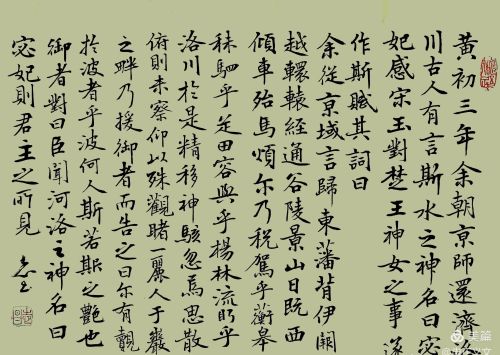 黄初三年余朝京师還濟洛
川古人有言斯水之神名曰宓
妃感宋玉對楚王神女之事遂
作斯賦其詞曰
余従京域言歸東藩背伊闕
越轘轅經通谷陵景山日既西
傾車殆馬煩尔乃税駕乎蘅皋
秣駟乎芝田容與乎楊林流眄乎
洛川於是精移神駭忽焉思散
俯則未察仰以殊觀睹一麗人于巖
之畔乃援御者而告之曰尔有覿
於波者乎波何人斯若斯之艷也
御者對曰臣聞河洛之神名曰
宓妃則君王之所見
美篇